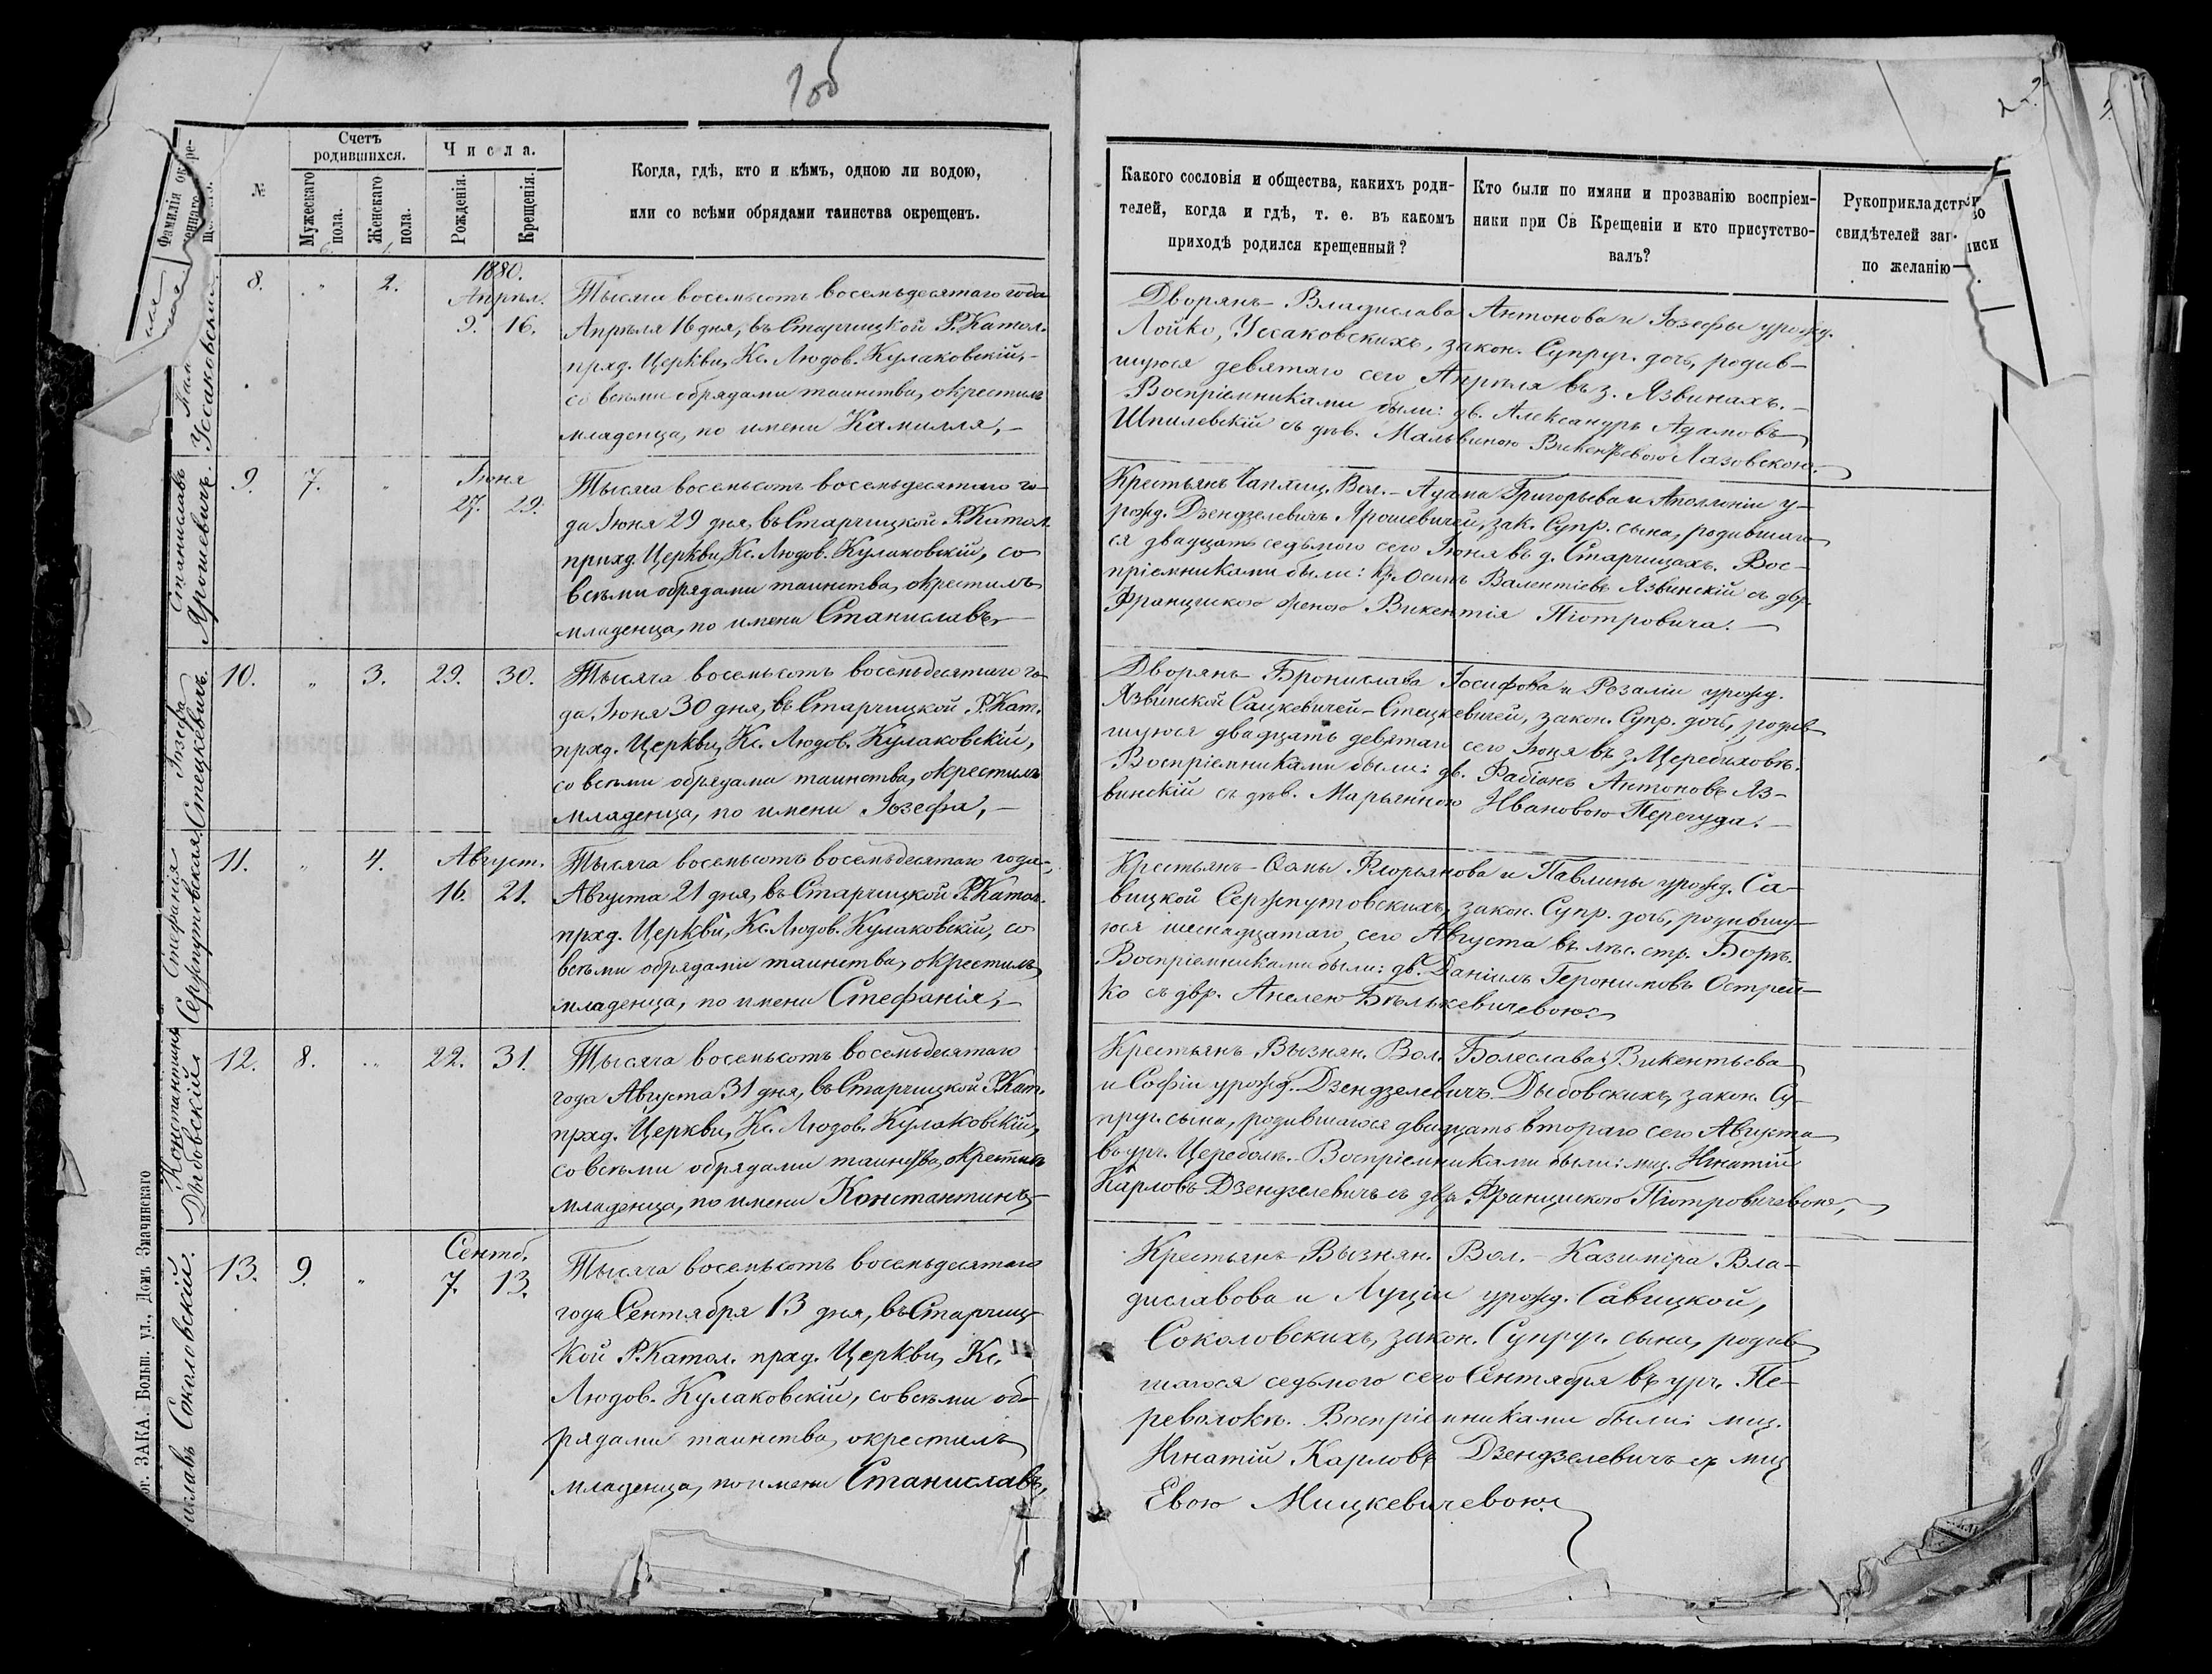 2об
Фамилія окре-
щеннаго.
№
Счетъ
родившихся.
Мужескаго
пола.
Женскаго
пола.
Числа.
Рожденія.
Крещенія.
Когда, гдѣ, кто и кѣмъ, одною ли водою,
или со всѣми обрядами таинства окрещенъ.
Какого сословія и общества, какихъ роди-
телей, когда и гдѣ, т. е. въ какомъ
приходѣ родился крещенный?
Кто были по имяни и прозванію воспріем-
ники при Св Крещеніи и кто присутство-
валъ?
Рукоприкладство
свидѣтелей записи
по желанію
6.
1.
Уссаковскій
8. " 2.
1880.
Апрѣл.
9. 16.
Тысяча восемьсотъ восемьдесятаго года
Апрѣля 16 дня, въ Старчицкой Р. Катол.
прхд. Церкви, Кс. Людов. Кулаковскій,-
со всѣми обрядами таинства, окрестилъ
младенца, по имени Камилля,-
Дворянъ- Владислава Антонова и Іозефы урожд.
Лойко, Уссаковскихъ, закон. Супруг. дочь, родив-
шуюся девятаго сего Апрѣля въ з. Язвинахъ.-
Воспріемниками были: дв. Александръ Адамовъ
Шпилевскій съ дѣв. Мальвиною Викентьевою Лазовскою.-
Станиславъ
Ярошевичъ.
9. 7. "
Іюня
27. 29.
Тысяча восемьсотъ восемьдесятаго го-
да Іюня 29 дня, въ Старчицкой Р. Катол.
прихд. Церкви, Кс. Людов. Кулаковскій, со
всѣми обрядами таинства, окрестилъ
младенца, по имени Станиславъ,-
Крестьянъ Чаплиц. Вол.- Адама Григорьева и Аполлоніи у-
рожд. Дзендзелевичъ Ярошевичей, зак. Супр. сына, родившаго-
ся двадцать седьмого сего Іюня въ д. Старчицахъ. Вос-
пріемниками были: кр. Осипъ Валентіевъ Язвинскій съ двр.
Францишкою женою Викентія Піотровича.-
Іозефа
Стецкевичъ.
10. " 3. 29. 30.
Тысяча восемьсотъ восемьдесятаго го-
да, Іюня 30 дня, въ Старчицкой Р. Кат.
прхд. Церкви, Кс. Людов. Кулаковскій,
со всѣми обрядами таинства, окрестилъ
младенца, по имени Іозефа,-
Дворянъ- Бронислава Іосифова и Розаліи урожд.
Язвинской Сацкевичей-Стецкевичей, закон. Супр. дочь, родив-
шуюся двадцать девятаго сего Іюня въ з. Церебиховѣ.
Воспріемниками были: дв. Фабіанъ Антоновъ Яз-
винскій съ дѣв. Марьянною Ивановою Перегуда.-
Стефанія
Сержпутовская
11. " 4.
Август.
16. 21.
Тысяча восемьсотъ восемьдесятаго года,
Августа 21 дня, въ Старчицкой Р. Катол.
прхд. Церкви, Кс. Людов. Кулаковскій, со
всѣми обрядами таинства, окрестилъ
младенца, по имени Стефанія,-
Крестьянъ- Ѳомы Флорьянова и Павлины урожд. Са-
вицкой Сержпутовскихъ, закон. Супр. дочь, родившу-
юся шеснадцатаго сего Августа въ лѣс. стр. Боркъ.
Воспріемниками были: дв. Даніилъ Геронимовъ Острей-
ко съ двр. Анелею Бѣлькевичевою.
Константинъ
Дыбовскій
12. 8. " 22. 31.
Тысяча восемьсотъ восемьдесятаго
года Августа 31 дня, въ Старчицкой Р. Кат.
прхд. Церкви, Кс. Людов. Кулаковскій,
со всѣми обрядами таинства, окрестилъ
младенца, по имени Константинъ,
Крестьянъ Вызнян. Вол. Болеслава Викентьева
и Софіи урожд. Дзендзелевичъ Дыбовскихъ, закон. Су-
пруг. сына, родившагося двадцать втораго сего Августа
въ ур. Цереболь. Воспріемниками были: мщ. Игнатій
Карловъ Дзендзелевичъ съ двр. Францишкою Піотровичевою,
Соколовскій.
13. 9. "
Сентб.
7. 13.
Тысяча восемьсотъ восемьдесятаго
года Сентября 13 дня, въ Старчиц-
кой Р. Катол. прхд. Церкви, Кс.
Людов. Кулаковскій, со всѣми об-
рядами таинства, окрестилъ
младенца, по имени Станиславъ,
Крестьянъ Вызнян. Вол.- Казиміра Вла-
диславова и Луціи урожд. Савицкой,
Соколовскихъ, закон. Супруг. сына, родив-
шагося седьмого сего Сентября въ урч. Пе-
револокѣ. Воспріемниками были: мщ.
Игнатій Карловъ Дзендзелевичъ съ мщ.
Евою Мицкевичевою.
ЗАКА. Больш. ул., Домъ Значинскаго